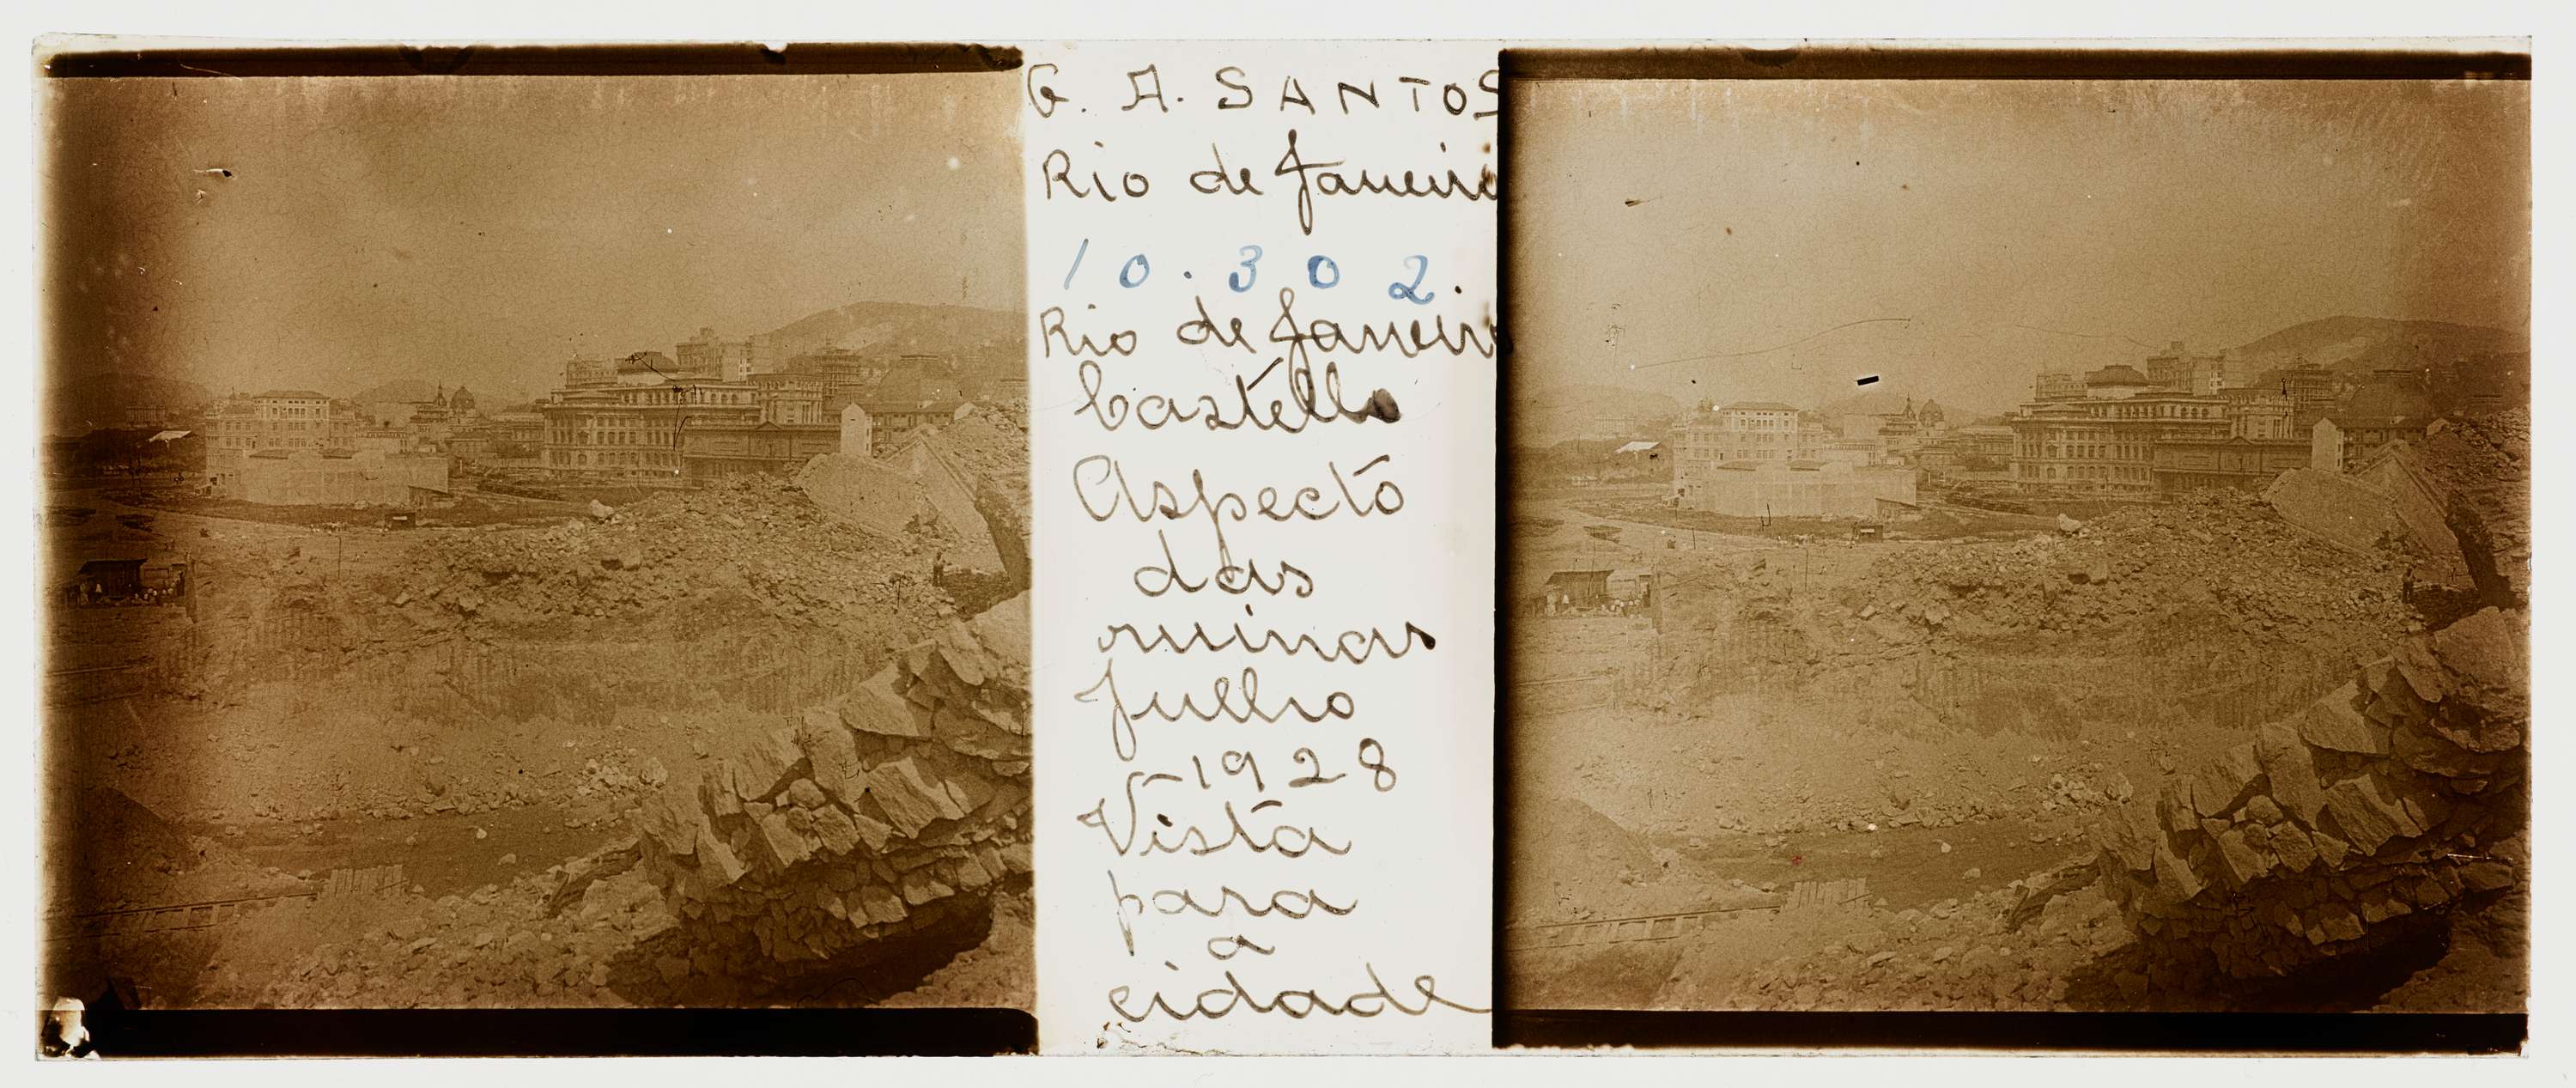 G. A. SANTOS
Rio de Janeiro
10.302.
Rio de Janeiro
Castello
Aspecto
das
ruinas
Julho
-1928
Vista
para
a
cidade